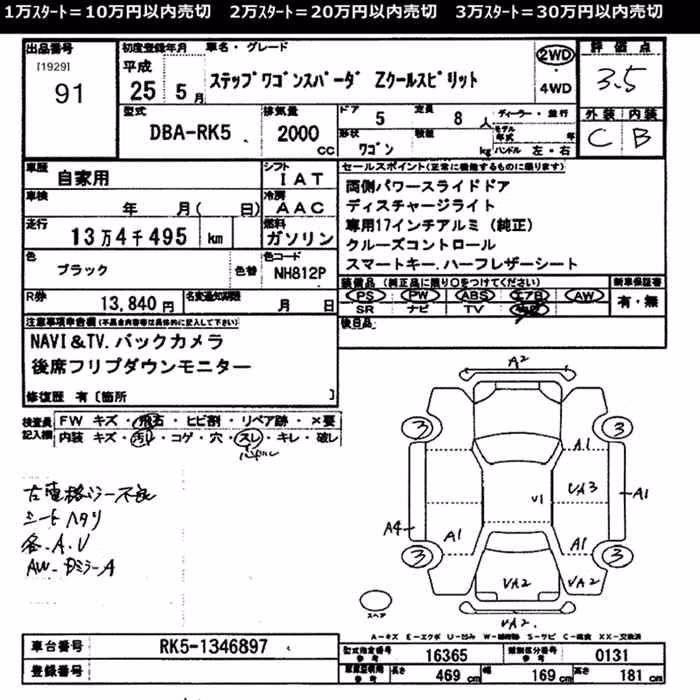 1万スタート＝10万円以内売切　2万スタート＝20万円以内売切　3万スタート＝30万円以内売切
出品番号
[1929]
91
初度登録年月 車名・グレード
平成 25 5月
ステップワゴンスパーダ Zクールスピリット
2WD
4WD
評価点
3.5
外装 内装
C B
型式
DBA-RK5
排気量
2000 CC
ドア 5
定員 8人
形状
ワゴン
積載 kg
ディーラー・並行
モデル年式 年
ハンドル 左・右
車歴 自家用
シフト IAT
車検 年 月( 日)
冷房 AAC
走行 13万4千495 km
燃料 ガソリン
色 ブラック 色替
色コード NH812P
R券 13,840円
名変通知期限 月 日
セールスポイント(正常に機能するものに限ります)
両側パワースライドドア
ディスチャージライト
専用17インチアルミ（純正）
クルーズコントロール
スマートキー.ハーフレザーシート
装備品（純正品に限り○をつけてください）
PS PW ABS エアB AW
SR ナビ TV
新車保証書
有・無
後日品
NAVI&TV.バックカメラ
後席フリプダウンモニター
修復歴 有〔箇所 〕
検査員記入欄
FW キズ・飛石・ヒビ割・リペア跡・×要
内装 キズ・汚レ・コゲ・穴・スレ・キレ・破レ
左電格ミラー不良
シートヘタリ
各.A.U
A2
3 3
A1
VA3
U1
A1
A4
A1
A1
3 3
VA2
VA2
VA2
スペア
A-キズ E-エクボ U-凹み W-補修跡 S-サビ C-腐食 XX-交換済
車台番号 RK5-1346897
登録番号
型式指定番号 参考 16365
類別区分番号 参考 0131
長さ 469 cm 幅 169 cm 高さ 181 cm